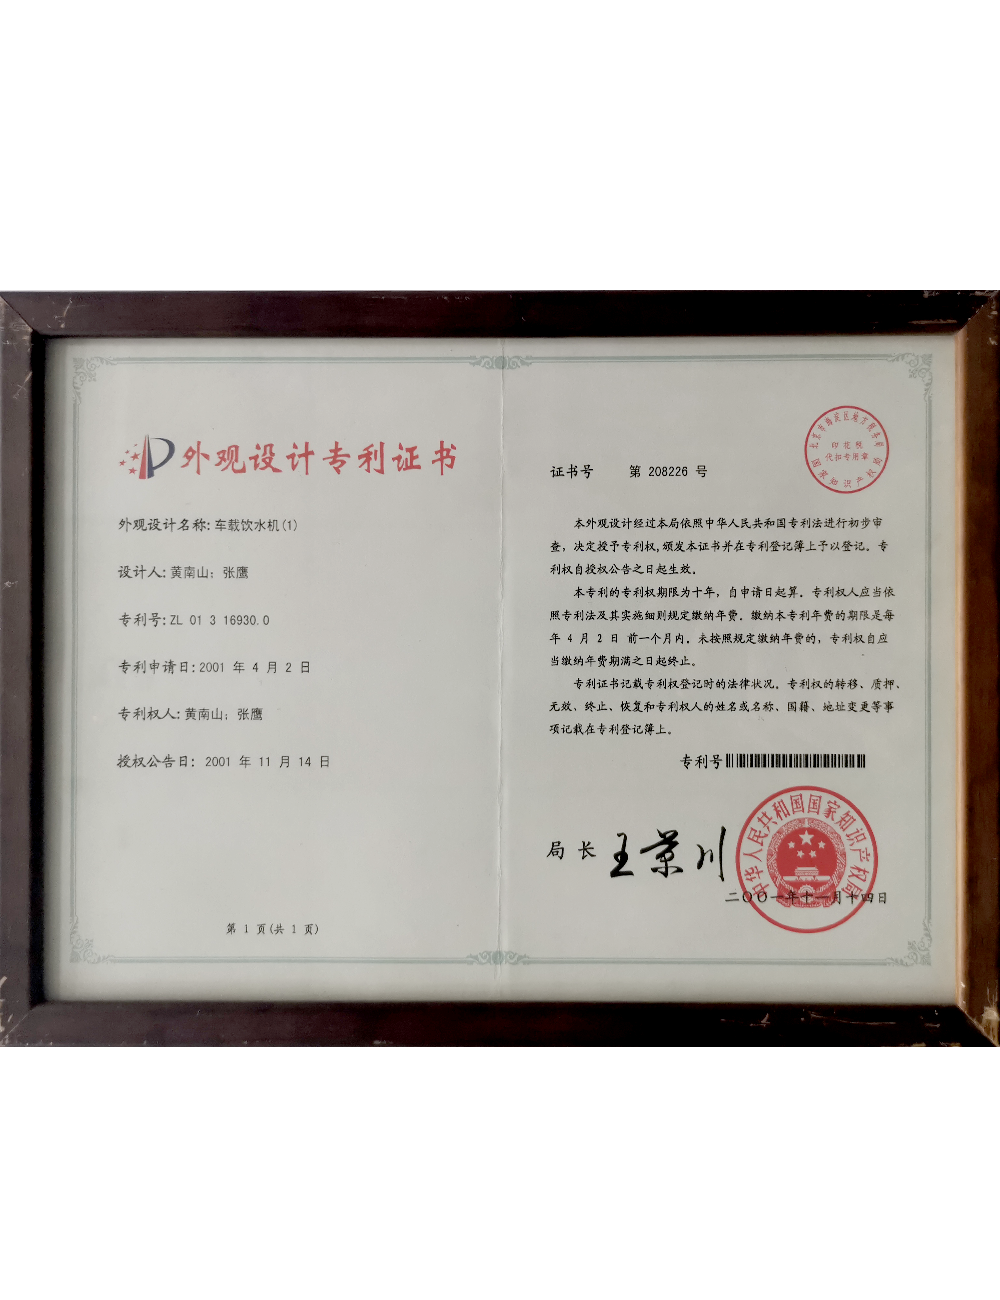 外观设计专利证书
外观设计名称:车载饮水机(1)
设计人:黄南山；张鹰
专利号:ZL 01 3 16930.0
专利申请日:2001 年 4 月 2 日
专利权人:黄南山；张鹰
授权公告日: 2001 年 11 月 14 日
第 1 页(共 1 页)
证书号 第 208226 号
北京市海淀区地方税务局
印花税
代扣专用章
国家知识产权局
本外观设计经过本局依照中华人民共和国专利法进行初步审
查，决定授予专利权,颁发本证书并在专利登记簿上予以登记。专
利权自授权公告之日起生效。
本专利的专利权期限为十年，自申请日起算。专利权人应当依
照专利法及其实施细则规定缴纳年费。缴纳本专利年费的期限是每
年 4 月 2 日 前一个月内。未按照规定缴纳年费的，专利权自应
当缴纳年费期满之日起终止。
专利证书记载专利权登记时的法律状况。专利权的转移、质押、
无效、终止、恢复和专利权人的姓名或名称、国籍、地址变更等事
项记载在专利登记簿上。
专利号
局长 王景川
中华人民共和国国家知识产权局
二〇〇一年十一月十四日